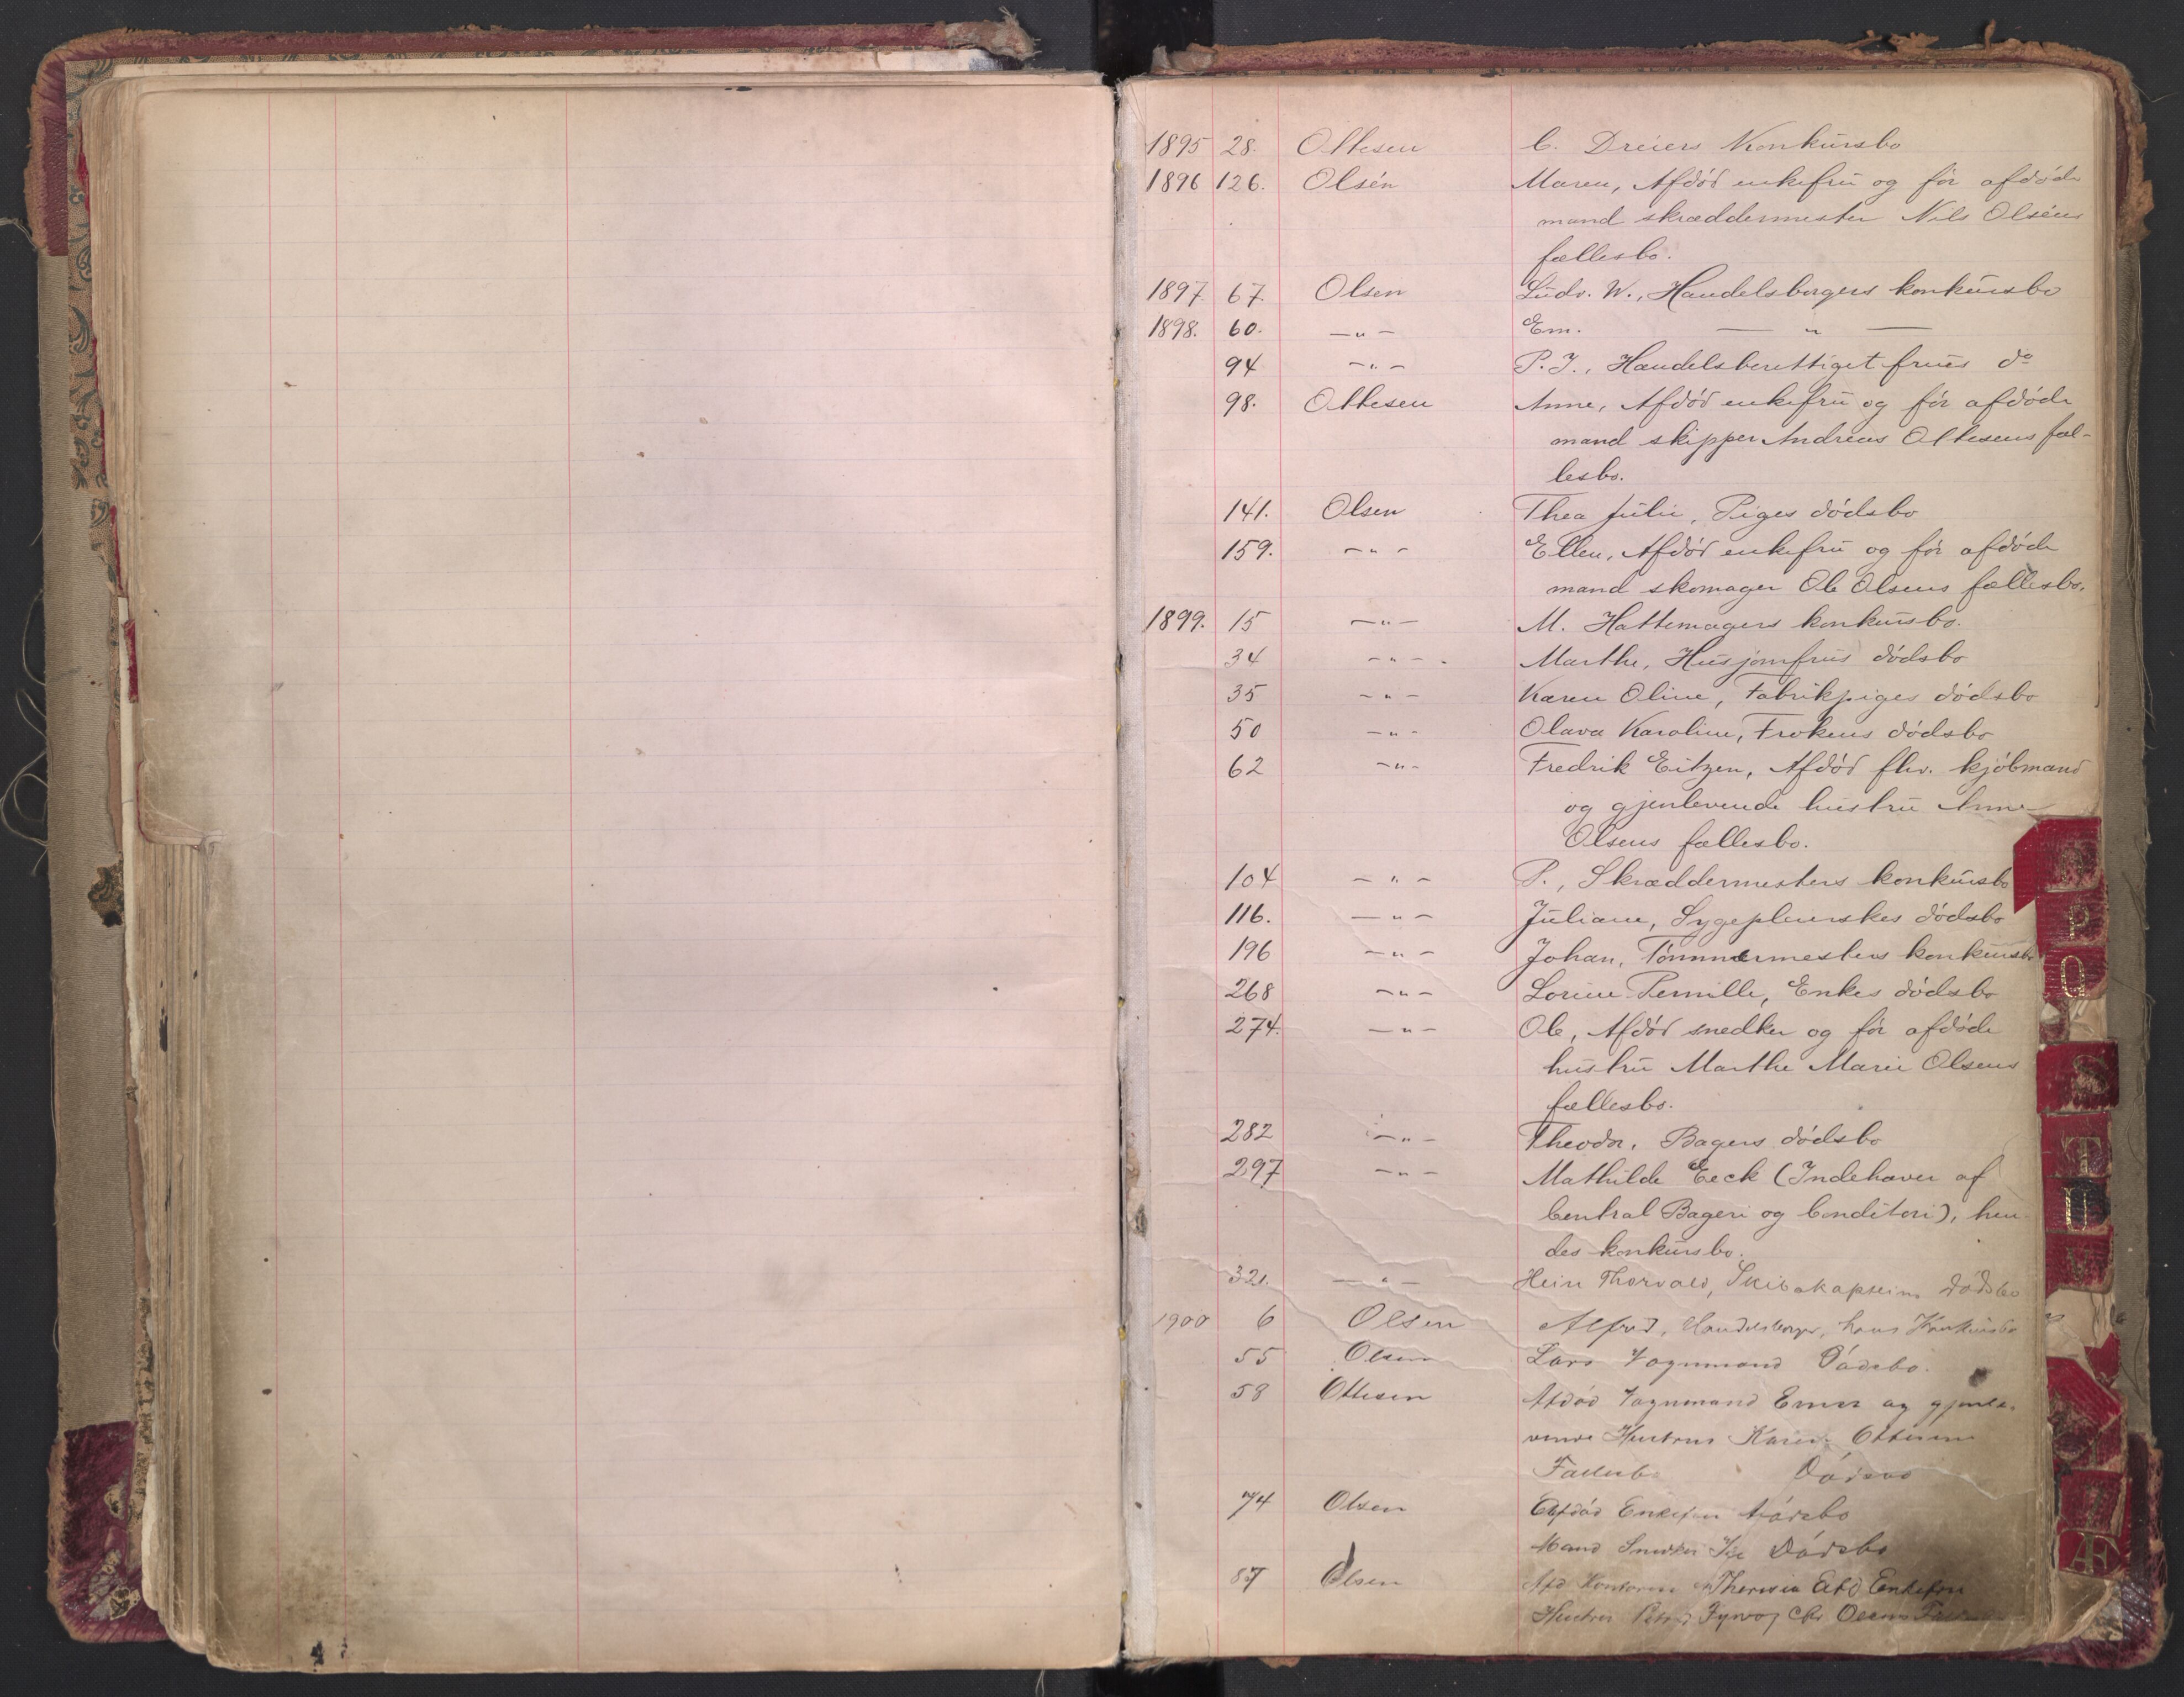 1895 28. Ottesen C. Dreiers Konkursbo
1896 126. Olsén Maren, Afdød enkefru og før afdøde
mand skræddermester Nils Olséns
fællesbo.
1897 67. Olsen Ludv. W., Handelsborgers konkursbo
1898. 60. —„— Em. —— „ ——
94 —„— P. J., Handelsberettiget frues do
98. Ottesen Anne, Afdød enkefru og før afdøde
mand skipper Andreas Ottesens fæl-
lesbo.
141. Olsen Thea Julie, Piges dødsbo
159. —„— Ellen, Afdød enkefru og før afdøde
mand skomager Ole Olsens fællesbo.
1899. 15 —„— M. Hattemagers konkursbo.
34 —„— Marthe, Husjomfrus dødsbo
35 —„— Karen Oline, Fabrikpiges dødsbo
50 —„— Olava Karoline, Frøkens dødsbo
62 —„— Fredrik Eitzen, Afdød fhv. kjøbmand
og gjenlevende hustru Anne
Olsens fællesbo.
104 —„— P., Skræddermesters konkursbo
116. —„— Juliane, Sygepleierskes dødsbo
196 —„— Johan, Tømmermesters konkursbo
268 —„— Lorine Pernille, Enkes dødsbo
274. —„— Ole, Afdød snedker og før afdøde
hustru Marthe Marie Olsens
fællesbo.
282 —„— Theodor, Bagers dødsbo
297 —„— Mathilde Eeck (Indehaver af
Central Bageri og Conditori), hen
des konkursbo.
321. —„— Thorvald, Skibskapteins dødsbo
1900 6 Olsen Alfred, Handelsborger, hans Konkursbo
55 Olsen Lars Vognmand Dødsbo.
58 Ottesen Afdød Vognmand og gjenle-
vende Hustrus Karen Ottesens
Dødsbo
74 Olsen Afdød Enkefru
Mand Snedker Dødsbo
87 Olsen Theresia Enkefru
Hustru
O
P
Q
S
T
U
V
Æ